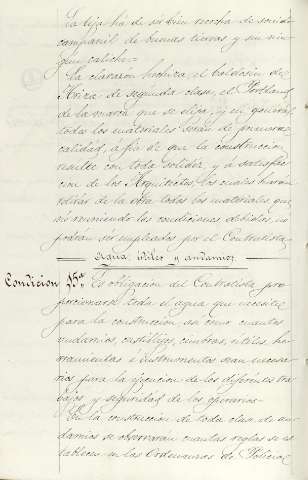 La teja ha de ser bien cocida de sonido
campanil de buenas tierras y sin nin-
gun caliche.
La clavazon hechiza, el baldosin de
Ariza de segunda clase, el Portland
de la marca que se elija, y en general
todos los materiales serán de primera
calidad, a fin de que la construccion
resulte con toda solidez y a satisfac-
cion de los Arquitectos, los cuales harán
retirar de la obra todos los materiales que
no reuniendo las condiciones debidas, no
podrán ser empleados por el Contratista.
Agua, útiles y andamios.
Condicion 15ª Es obligacion del Contratista pro-
porcionarse toda el agua que necesite
para la construccion, asi como cuantos
andamios, castillejos, cimbras, útiles, he-
rramientas e instrumentos sean necesa-
rios para la ejecucion de los diferentes tra-
bajos y seguridad de los operarios.
En la construccion de toda clase de an-
damios se observarán cuantas reglas se es-
tablecen en las Ordenanzas de Policia